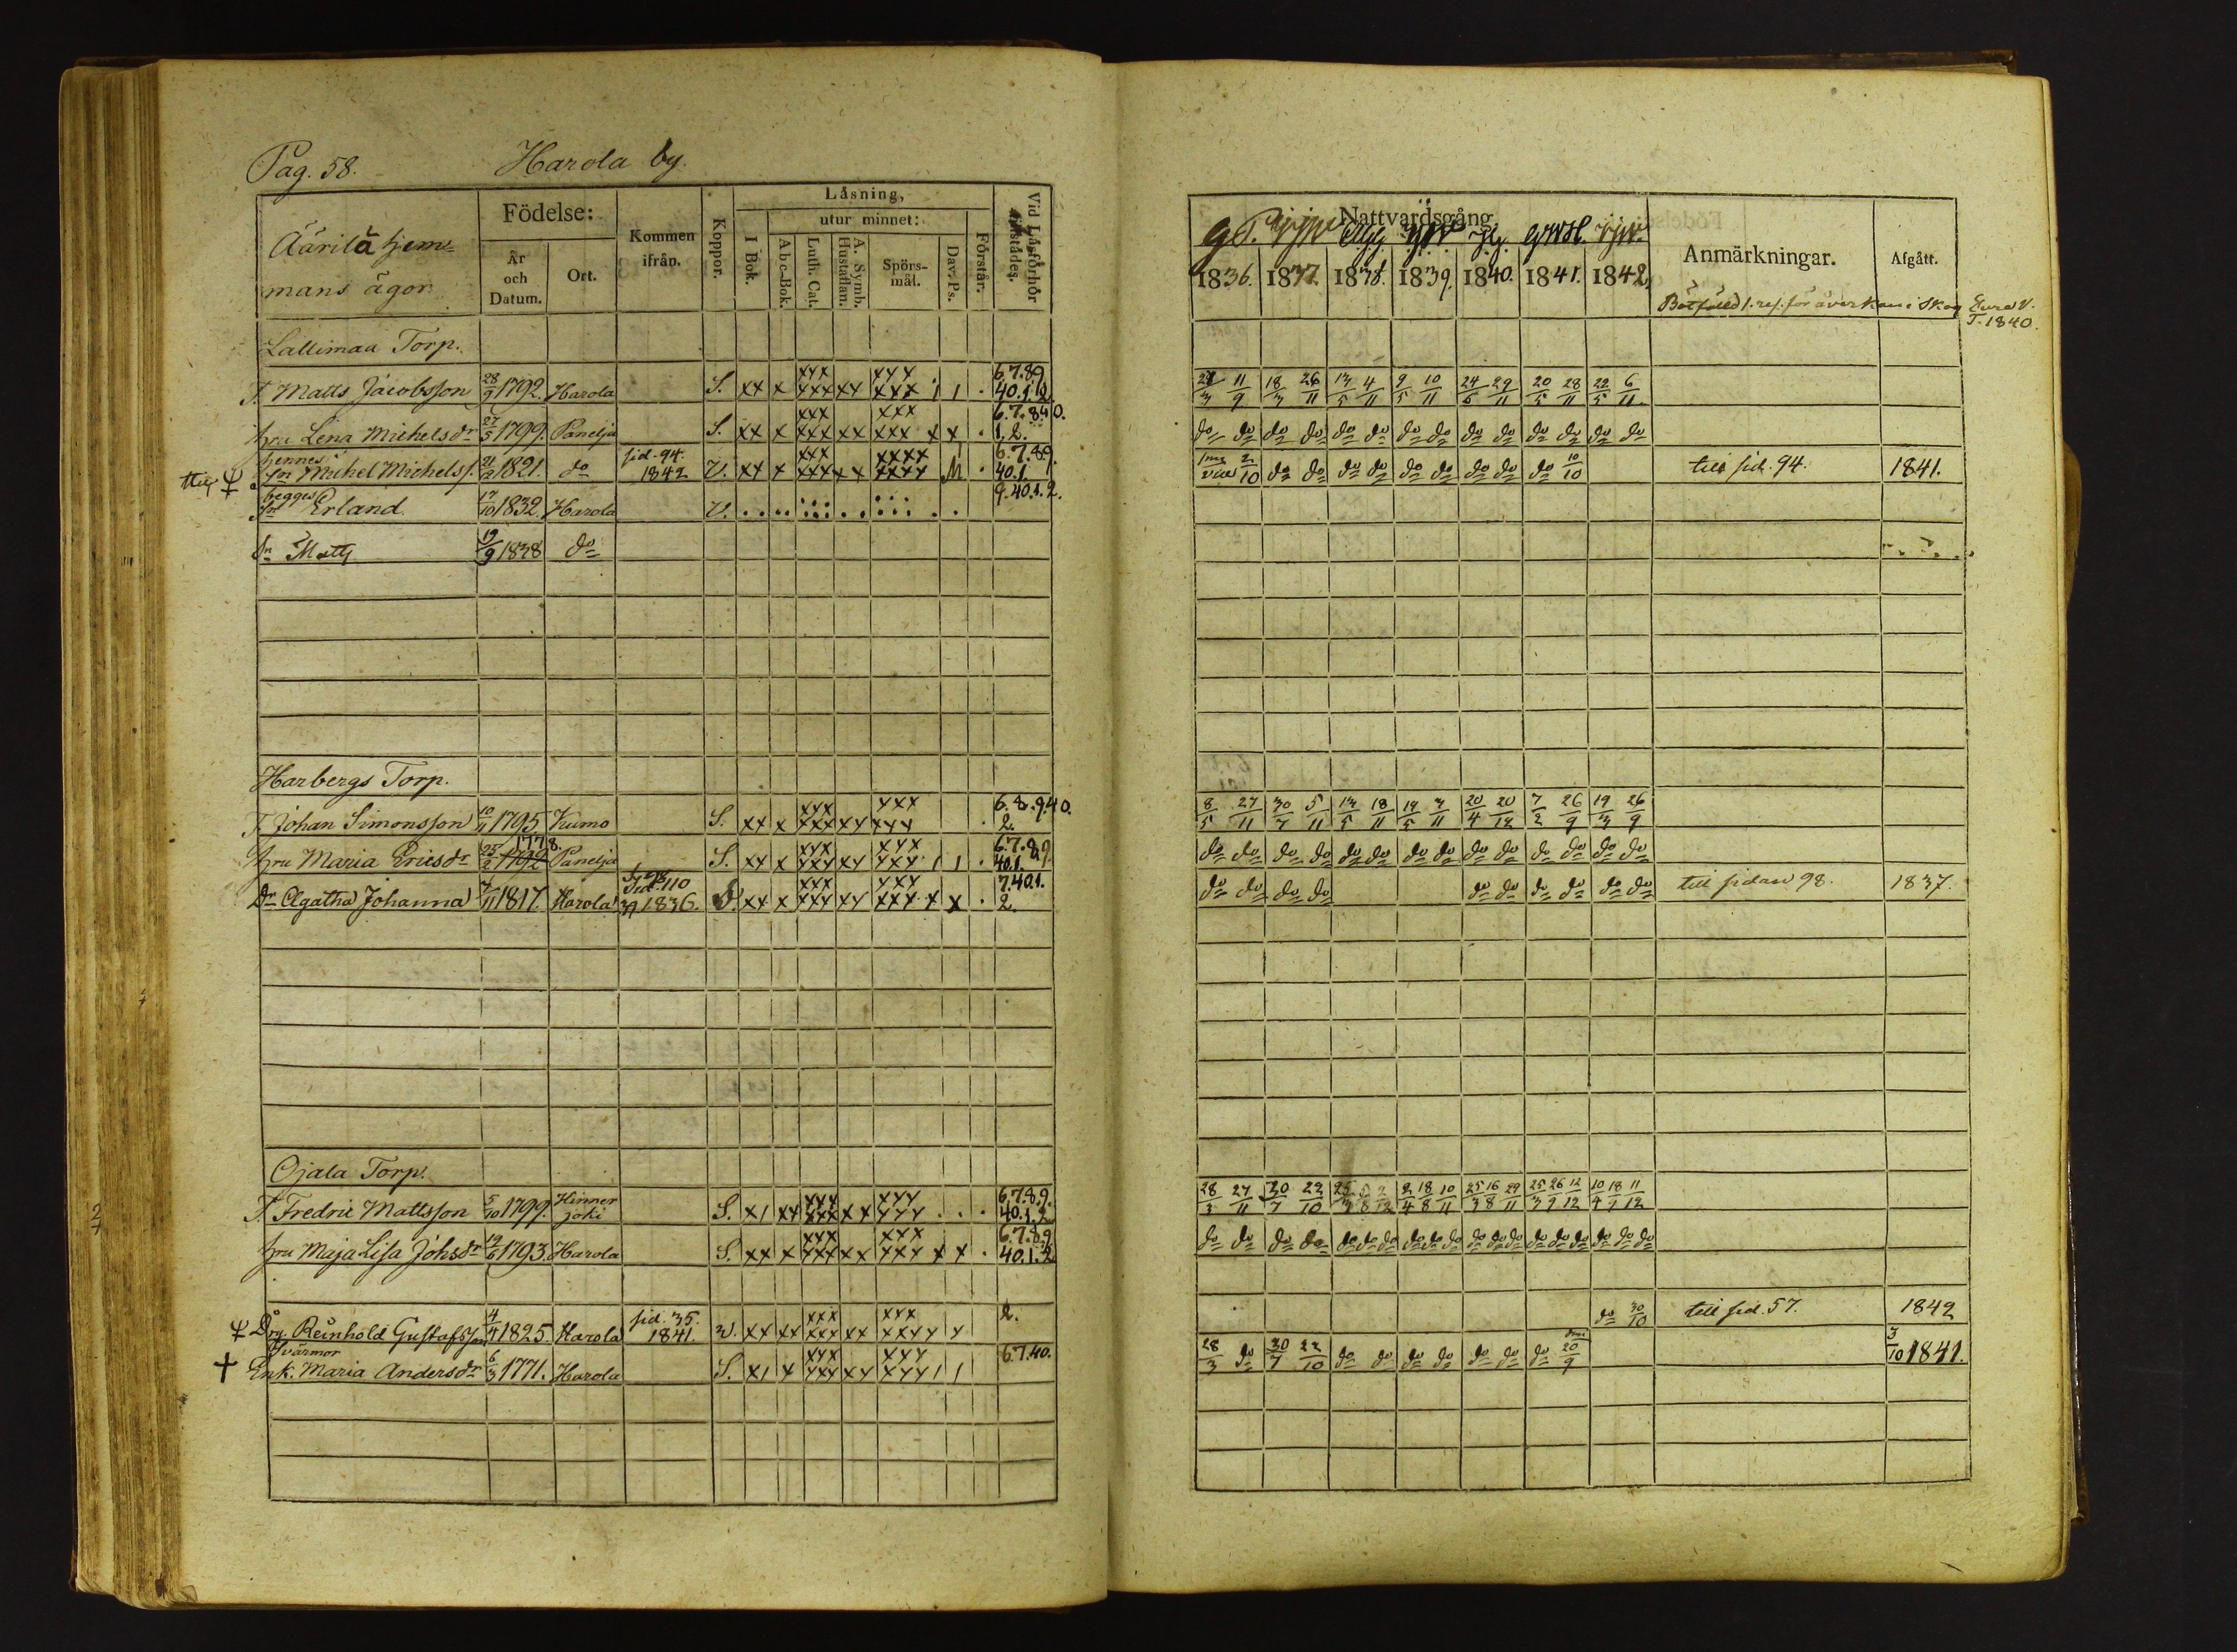 Pag. 58. Harola by.
Äärilä hjem-
mans ägor
Födelse:
År
och
Datum.
Ort.
Kommen
ifrån.
Koppor.
Läsning,
utur minnet:
I Bok.
Abc-Bok.
Luth. Cat.
A. Symb.
Hustaflan.
Spörs-
mål.
Dav. Ps.
Förstår.
Vid Läsförhör
tilstädes.
Lallimaa Torp.
T. Matts Jacobsson 28/9 1792. Harola S. xx x xxx xxx xx xxx xxx 1 1 . 6.7.8.9. 40.1.2.
hru Lena Michelsdr 27/5 1799. Panelja S. xx x xxx xxx xx xxx xxx x x . 6.7.8.40. 1.2.
hennes
sn Michel Michelss. 21/2 1821. do sid. 94. 1842 V. xx x xxx xxx xx xxxx xxxx . 6.7.8.9. 40.1.
begges
sn Erland 17/10 1832. Harola V. 9.40.1.2.
sn Matts 19/9 1838 do
Harbergs Torp.
T. Johan Simonsson 10/11 1795. Kumo S. xx x xxx xxx xx xxx xxx . 6.8.9.40. 2.
1778.
hru Maria Ericsdr 25/2 1792 Panelja S. xx x xxx xxx xx xxx xxx 1 1 . 6.7.8.9. 40.1.
Dr Agatha Johanna 1817. Harola 110 1836. S. xx x xxx xxx xx xxx xxx x x . 7.40.1. 2.
Ojala Torp.
T. Fredric Mattsson 5/10 1799. Hinner
joki S. x1 xx xxx xxx xx xxx xxx . . . 6.7.8.9. 40.1.2.
hru Maja Lisa Johsdr 19/6 1793. Harola S. xx x xxx xxx xx xxx xxx x x . 6.7.8.9. 40.1.2
Drg. Reinhold Gustafsson 4/4 1825. Harola sid. 35. 1841. V. xx xx xxx xxx xx xxx xxxx x 2.
Svärmor
Enk. Maria Andersdr 6/3 1771. Harola S. x1 x xxx xxx xx xxx xxx 1 1 6.7.40.
Nattvardsgång.
1836. 1837. 1838. 1839. 1840. 1841. 1842.
Anmärkningar.
Afgått.
Bötfälld 1. res. för åverkan i skog Eura V.
T. 1840.
11/9 18/3 26/11 13/5 4/11 9/5 10/11 24/5 29/11 20/5 28/11 22/5 6/11
do do do do do do do do do do do do do do
2/10 do do do do do do do do do 10/10 till sid. 94. 1841.
8/5 27/11 30/7 5/11 13/5 18/11 19/5 3/11 20/4 20/12 7/2 26/9 19/3 26/9
do do do do do do do do do do do do do do
do do do do do do do do do do till sidan 98. 1837.
28/3 27/11 30/7 22/10 2/4 18/8 10/11 25/3 16/8 29/11 25/3 26/9 12/12 10/4 18/9 11/12
do do do do do do do do do do do do do do do do do do do
do 30/10 till sid. 57. 1842
28/3 do 30/7 22/10 do do do do do do do 20/9 3/10 1841.